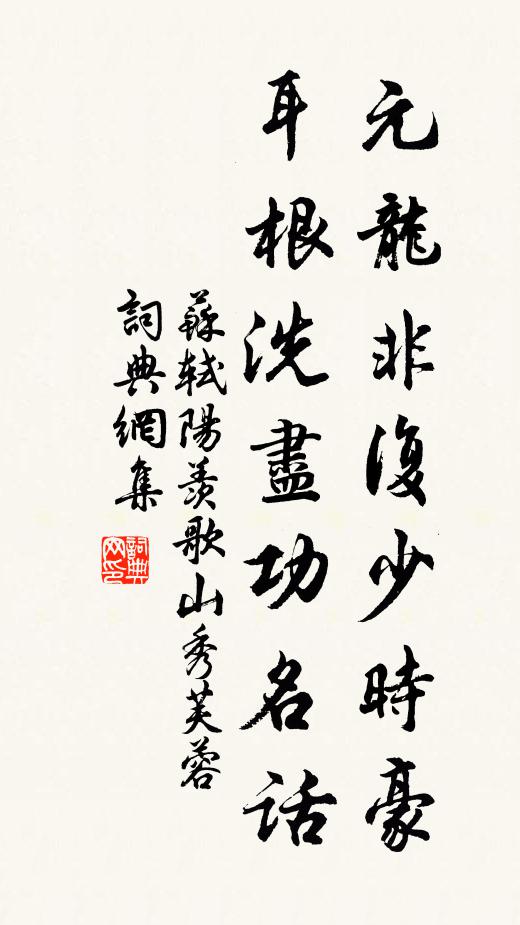 元龍非復少時豪
耳根洗盡功名話
蘇軾陽羨歌山秀芙蓉
詞典網集
詞典
网印